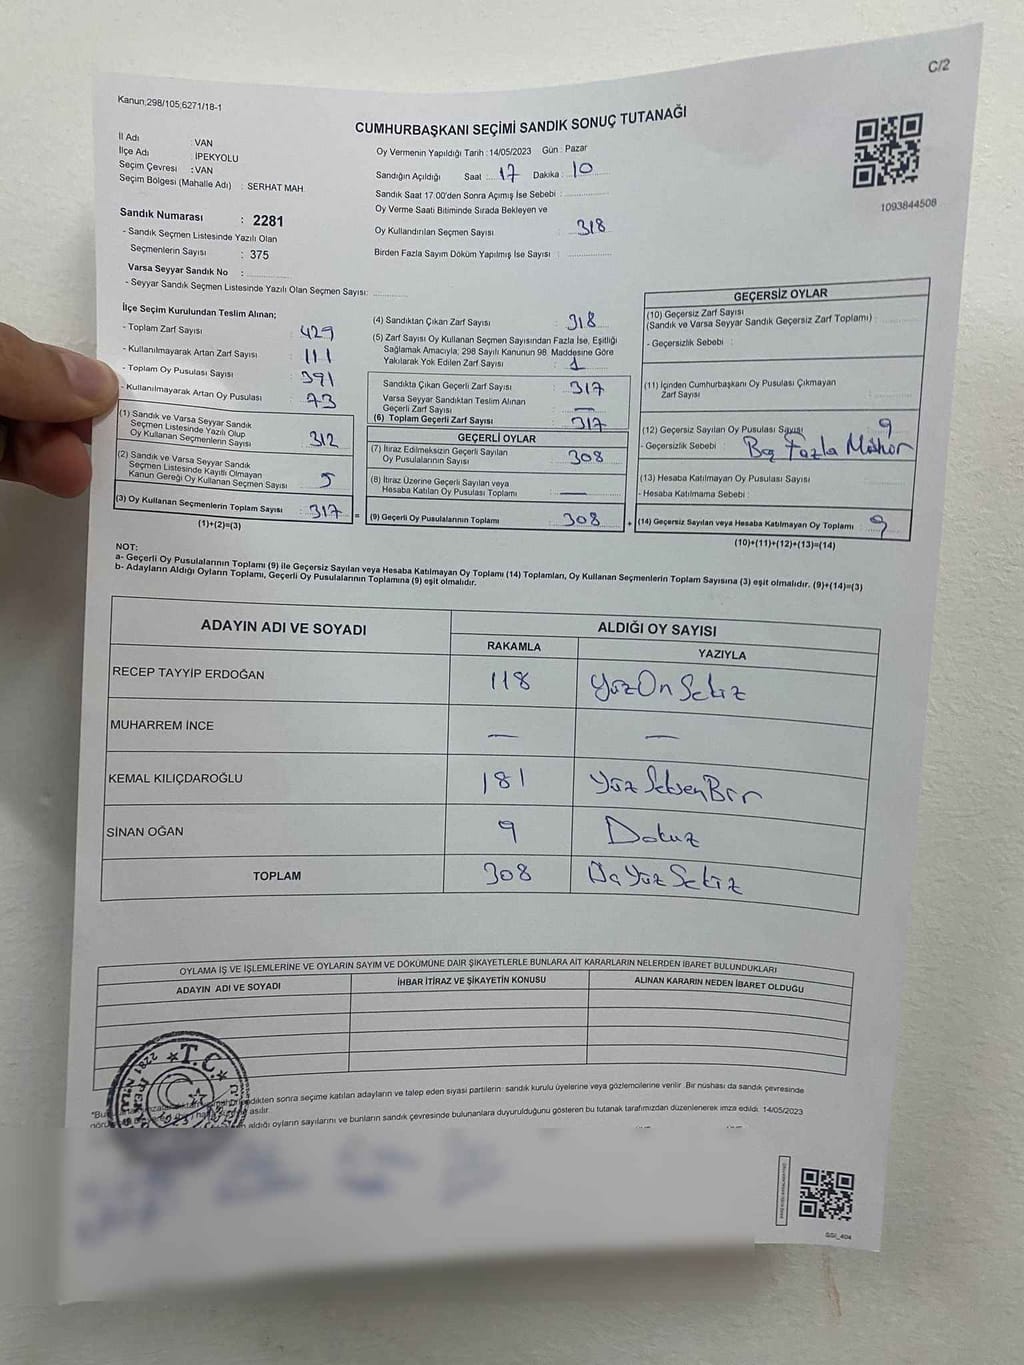 C/2
Kanun;298/105;6271/18-1
CUMHURBAŞKANI SEÇİMİ SANDIK SONUÇ TUTANAĞI
İl Adı VAN
İlçe Adı İPEKYOLU
Seçim Çevresi :VAN
Seçim Bölgesi (Mahalle Adı) : SERHAT MAH.
Oy Vermenin Yapıldığı Tarih :14/05/2023 Gün : Pazar
Sandığın Açıldığı Saat : 17 Dakika : 10
Sandık Saat 17:00'den Sonra Açımış İse Sebebi :
Oy Verme Saati Bitiminde Sırada Bekleyen ve
Oy Kullandırılan Seçmen Sayısı : 318
Birden Fazla Sayım Döküm Yapılmış İse Sayısı :
1093844508
Sandık Numarası : 2281
- Sandık Seçmen Listesinde Yazılı Olan
Seçmenlerin Sayısı : 375
Varsa Seyyar Sandık No :
- Seyyar Sandık Seçmen Listesinde Yazılı Olan Seçmen Sayısı:
İlçe Seçim Kurulundan Teslim Alınan;
- Toplam Zarf Sayısı : 429
- Kullanılmayarak Artan Zarf Sayısı : 111
- Toplam Oy Pusulası Sayısı : 391
- Kullanılmayarak Artan Oy Pusulası : 73
(1) Sandık ve Varsa Seyyar Sandık
Seçmen Listesinde Yazılı Olup
Oy Kullanan Seçmenlerin Sayısı : 312
(2) Sandık ve Varsa Seyyar Sandık
Seçmen Listesinde Kayıtlı Olmayan
Kanun Gereği Oy Kullanan Seçmen Sayısı : 5
(3) Oy Kullanan Seçmenlerin Toplam Sayısı : 317 =
(1)+(2)=(3)
(4) Sandıktan Çıkan Zarf Sayısı : 318
(5) Zarf Sayısı Oy Kullanan Seçmen Sayısından Fazla İse, Eşitliği
Sağlamak Amacıyla; 298 Sayılı Kanunun 98. Maddesine Göre
Yakılarak Yok Edilen Zarf Sayısı : 1
Sandıkta Çıkan Geçerli Zarf Sayısı : 317
Varsa Seyyar Sandıktan Teslim Alınan
Geçerli Zarf Sayısı : —
(6) Toplam Geçerli Zarf Sayısı : 317
GEÇERLİ OYLAR
(7) İtiraz Edilmeksizin Geçerli Sayılan
Oy Pusulalarının Sayısı : 308
(8) İtiraz Üzerine Geçerli Sayılan veya
Hesaba Katılan Oy Pusulası Toplamı : —
(9) Geçerli Oy Pusulalarının Toplamı : 308 +
GEÇERSİZ OYLAR
(10) Geçersiz Zarf Sayısı
(Sandık ve Varsa Seyyar Sandık Geçersiz Zarf Toplamı) :
- Geçersizlik Sebebi :
(11) İçinden Cumhurbaşkanı Oy Pusulası Çıkmayan
Zarf Sayısı :
(12) Geçersiz Sayılan Oy Pusulası Sayısı : 9
- Geçersizlik Sebebi : Fazla Mühür
(13) Hesaba Katılmayan Oy Pusulası Sayısı :
- Hesaba Katılmama Sebebi :
(14) Geçersiz Sayılan veya Hesaba Katılmayan Oy Toplamı : 9
(10)+(11)+(12)+(13)=(14)
NOT:
a- Geçerli Oy Pusulalarının Toplamı (9) ile Geçersiz Sayılan veya Hesaba Katılmayan Oy Toplamı (14) Toplamları, Oy Kullanan Seçmenlerin Toplam Sayısına (3) eşit olmalıdır. (9)+(14)=(3)
b- Adayların Aldığı Oyların Toplamı, Geçerli Oy Pusulalarının Toplamına (9) eşit olmalıdır.
ADAYIN ADI VE SOYADI ALDIĞI OY SAYISI
RAKAMLA YAZIYLA
RECEP TAYYİP ERDOĞAN 118 YüzOnSekiz
MUHARREM İNCE — —
KEMAL KILIÇDAROĞLU 181 Yüz SeksenBir
SİNAN OĞAN 9 Dokuz
TOPLAM 308 Üç Yüz Sekiz
OYLAMA İŞ VE İŞLEMLERİNE VE OYLARIN SAYIM VE DÖKÜMÜNE DAİR ŞİKAYETLERLE BUNLARA AİT KARARLARIN NELERDEN İBARET BULUNDUKLARI
ADAYIN ADI VE SOYADI İHBAR İTİRAZ VE ŞİKAYETİN KONUSU ALINAN KARARIN NEDEN İBARET OLDUĞU
T.C.
dikten sonra seçime katılan adayların ve talep eden siyasi partilerin: sandık kurulu üyelerine veya gözlemcilerine verilir .Bir nüshası da sandık çevresinde
asılır.
aldığı oyların sayılarını ve bunların sandık çevresinde bulunanlara duyurulduğunu gösteren bu tutanak tarafımızdan düzenlenerek imza edildi. 14/05/2023
SSI_404